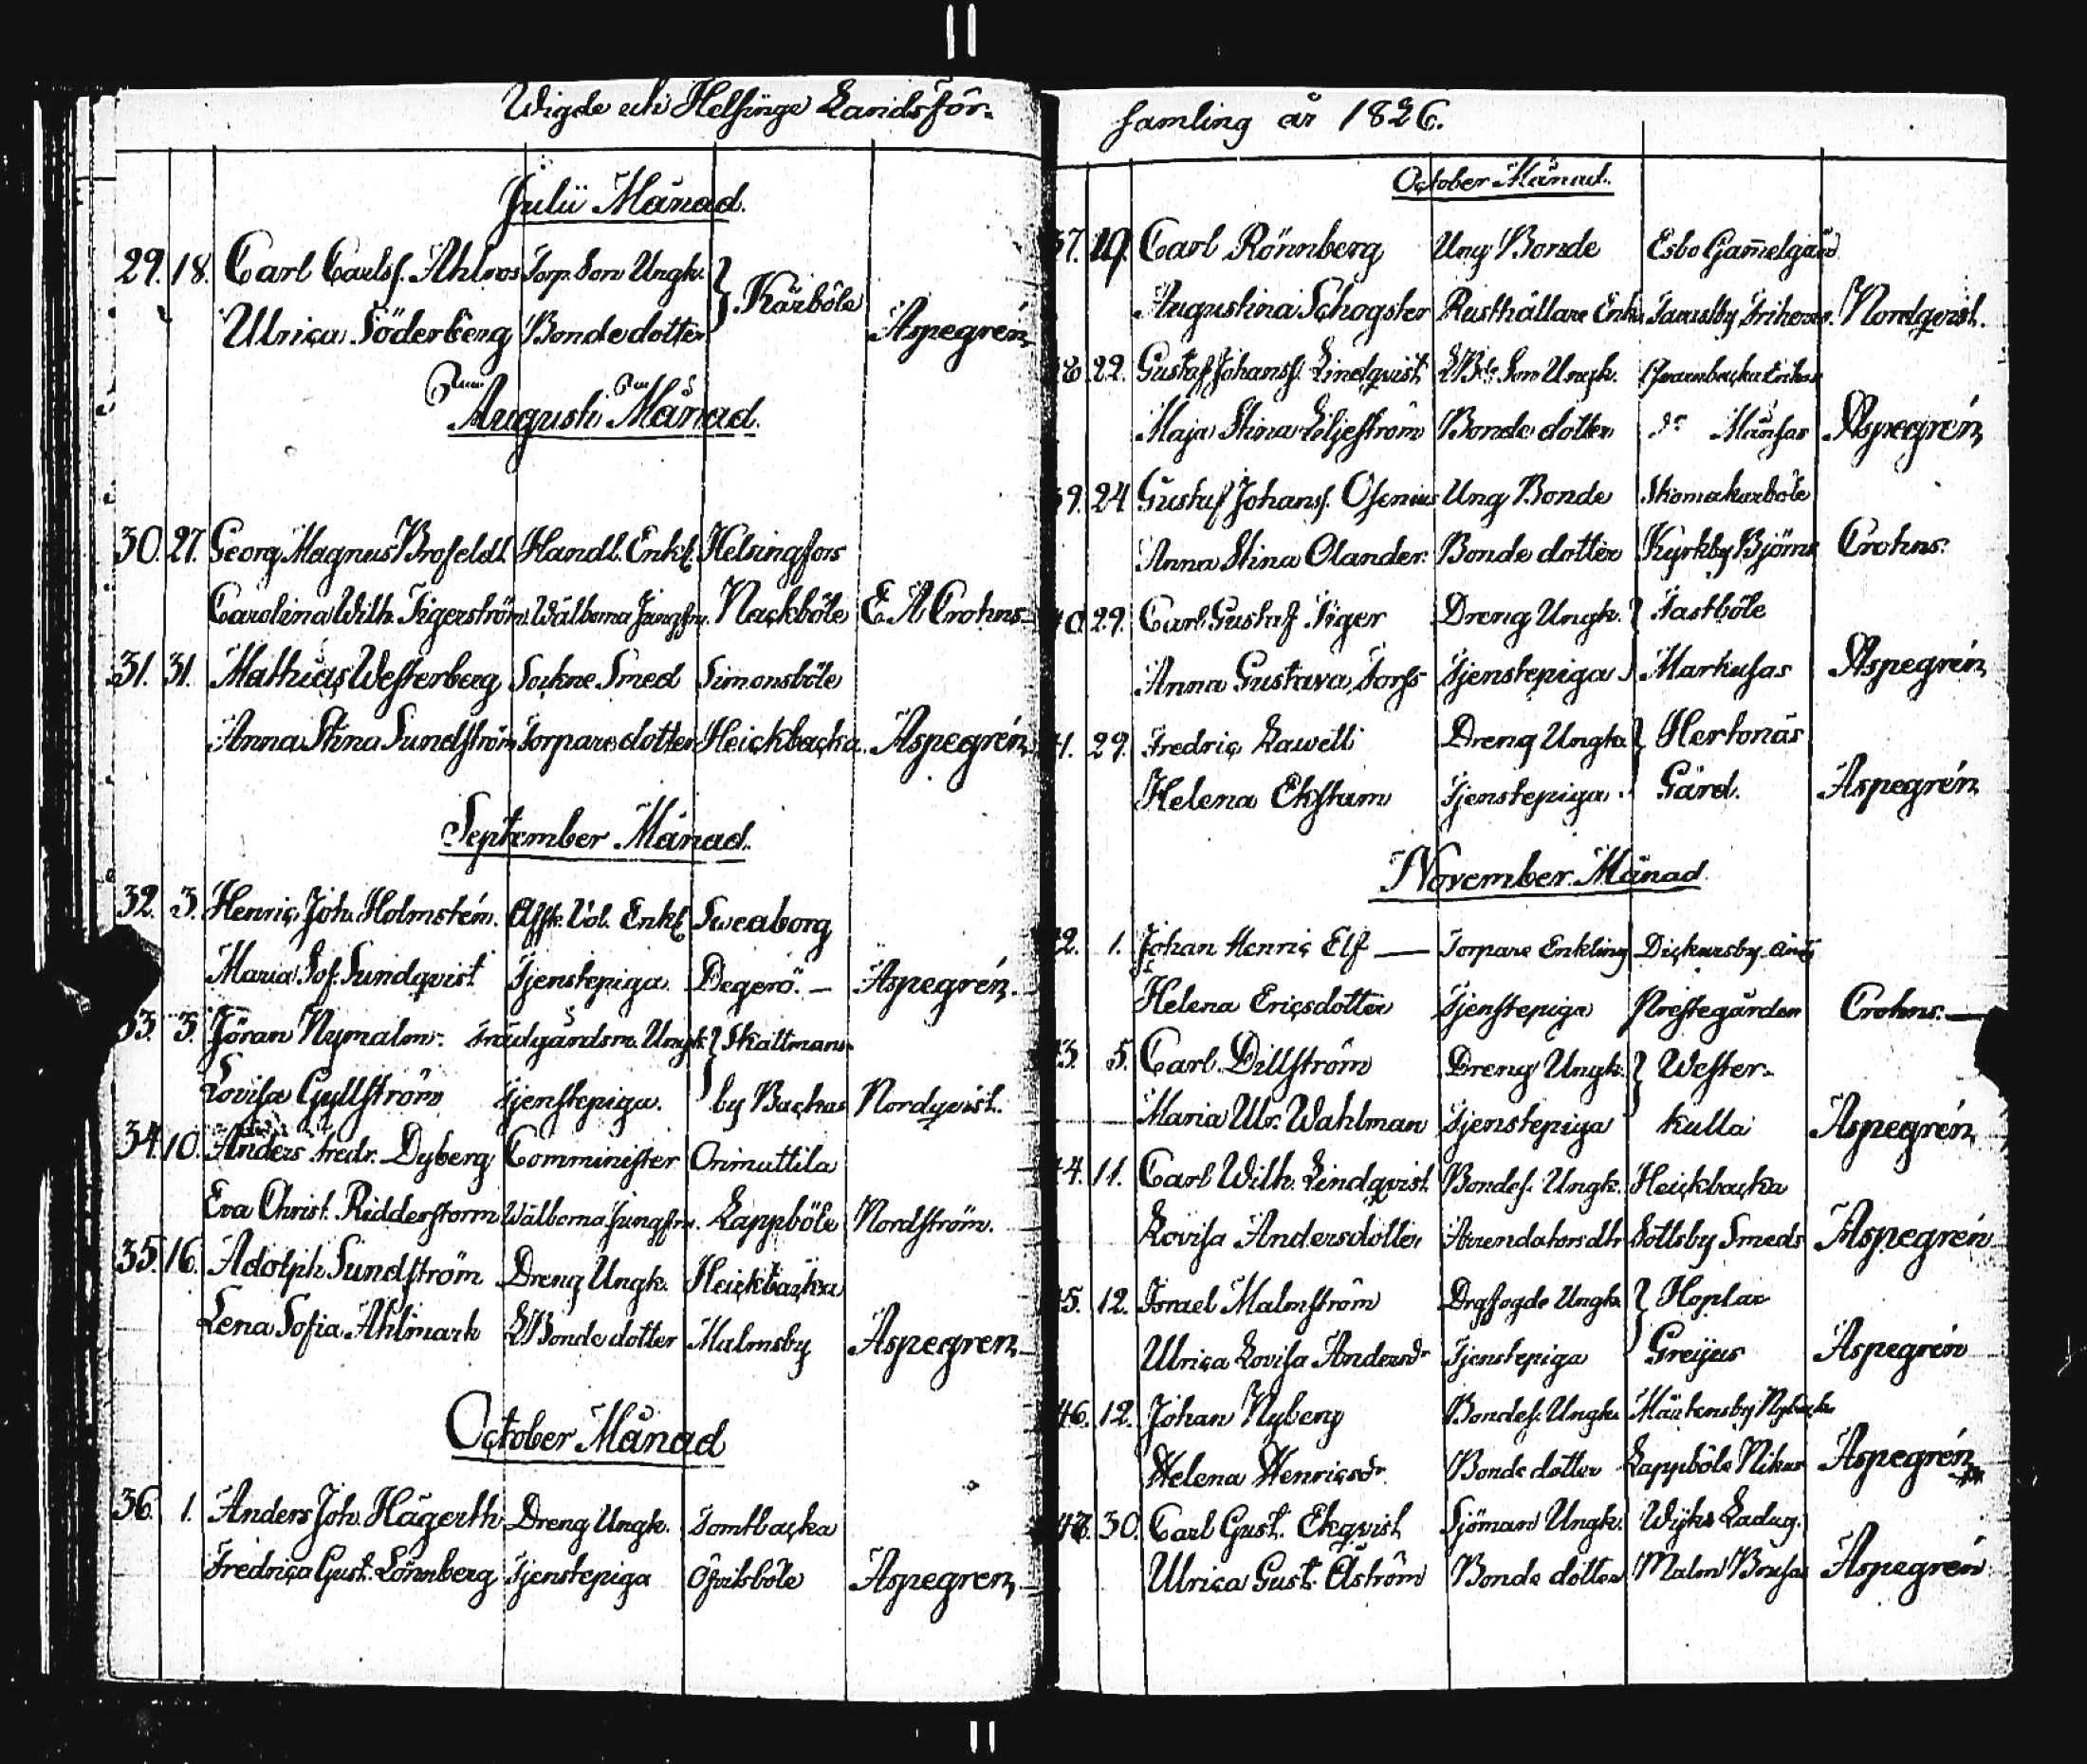 Wigde uti Helsinge Landsför-
Julii Månad.
29. 18. Carl Carlss. Ahlroos Torp. Son Ungk. } Kårböle
Ulrica Söderberg Bondedotter Aspegrén
Augusti Månad.
30. 27. Georg Magnus Brofeldt Handl. Enkl. Helsingfors
Carolina Wilh. Tigerström Wälborna Jungfru. Nackböle E. A Crohns
31. 31. Mathias Westerberg Sockne Smed Simonsböle
Anna Stina Sundström Torpare dotter Heickbacka Aspegrén
September Månad.
32. 3. Henric Joh. Holmstén. Enkl. Sweaborg
Maria Sof. Sundqvist Tjenstepiga Degerö. – Aspegrén.
33. 3. Jöran Nymalm. Trädgårdsm. Ungk. } Skattmans-
Lovisa Gyllström Tjenstepiga. by Backas Nordqvist.
34. 10. Anders Fredr. Dyberg Comminister Orimattila
Eva Christ. Ridderstorm Wälborna Jungfru. Lappböle Nordström.
35. 16. Adolph Sundström Dreng Ungk. Heickbacka
Lena Sofia Ahlmark Bonde dotter Malmsby Aspegren
October Månad
36. 1. Anders Joh. Hägerth Dreng Ungk. Tomtbacka
Fredrica Gust. Lönnberg Tjenstepiga Öfvitsböle Aspegren
samling år 1826.
October Månad.
37. 19. Carl Rönnberg Ung Bonde Esbo Gammelgård
Augustina Schogster Rusthållare Enka Nordqvist.
38. 22. Gustaf Johanss. Lindqvist Son Ungk.
Maja Stina Liljeström Bonde dotter do Månsas Aspegrén
39. 24 Gustaf Johanss. Osenius Ung Bonde Skomakarböle
Anna Stina Olander. Bonde dotter Kyrkby Björns Crohns.
40. 29. Carl Gustaf Tiger Dreng Ungk. } Tastböle
Anna Gustava Torss Tjenstepiga Markusas Aspegrén
41. 29. Fredric Lawell Dreng Ungk. } Hertonäs
Helena Ekstam Tjenstepiga Gård. Aspegrén
November Månad
42. 1. Johan Henric Elf — Torpare Enkling Dickursby
Helena Ericsdotter Tjenstepiga Prestegården Crohns. —
43. 5. Carl Dillström Dreng Ungk. } Wester-
Maria Ulr. Wahlman Tjenstepiga kulla Aspegrén
44. 11. Carl Wilh. Lindqvist Bondes. Ungk. Heickbacka
Lovisa Andersdotter Arrendators dtr Sottsby Smeds Aspegrén
45. 12. Israel Malmström Drgfogde Ungk. } Hoplax
Ulrica Lovisa Andersdr Tjenstepiga Greijus Aspegrén
46. 12. Johan Nyberg Bondes. Ungk. Mårtensby Nybacka
Helena Henricsdr. Bonde dotter Lappböle Nikus Aspegrén
47. 30. Carl Gust. Ekqvist Sjöman Ungk. Wijks Ladug.
Ulrica Gust. Åström Bonde dotter Malm Brusas Aspegrén